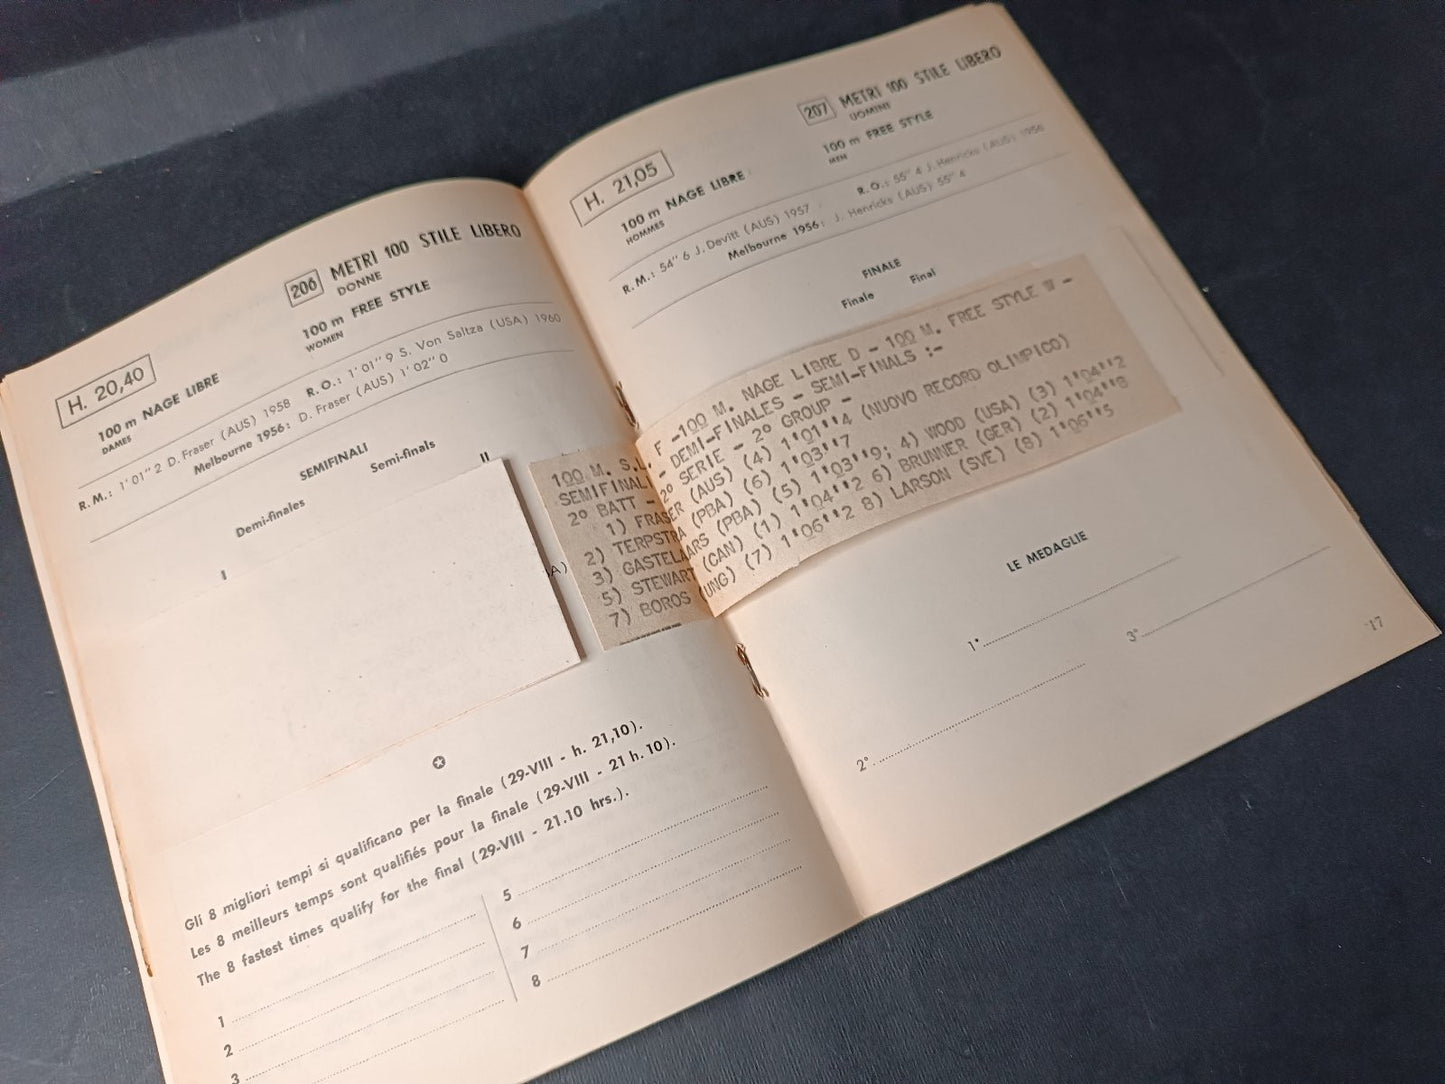 H. 20,40
206 METRI 100 STILE LIBERO
DONNE
100 m NAGE LIBRE
DAMES
100 m FREE STYLE
WOMEN
R. M.: 1' 01'' 2 D. Fraser (AUS) 1958 R. O.: 1' 01'' 9 S. Von Saltza (USA) 1960
Melbourne 1956: D. Fraser (AUS) 1' 02'' 0
SEMIFINALI
Demi-finales Semi-finals
I
II
A)
Gli 8 migliori tempi si qualificano per la finale (29-VIII - h. 21,10).
Les 8 meilleurs temps sont qualifiés pour la finale (29-VIII - 21 h. 10).
The 8 fastest times qualify for the final (29-VIII - 21.10 hrs.).
1
2
3
5
6
7
8
H. 21,05
207 METRI 100 STILE LIBERO
UOMINI
100 m NAGE LIBRE
HOMMES
100 m FREE STYLE
MEN
R. M.: 54'' 6 J. Devitt (AUS) 1957 R. O.: 55'' 4 J. Henricks (AUS) 1956
Melbourne 1956: J. Henricks (AUS) 55'' 4
FINALE
Finale Final
100 M. S.L. F -100 M. NAGE LIBRE D - 100 M. FREE STYLE W -
SEMIFINALI - DEMI-FINALES - SEMI-FINALS :-
2º BATT - 2º SERIE - 2º GROUP -
1) FRASER (AUS) (4) 1'01''4 (NUOVO RECORD OLIMPICO)
2) TERPSTRA (PBA) (6) 1'03''7
3) GASTELAARS (PBA) (5) 1'03''9; 4) WOOD (USA) (3) 1'04''2
5) STEWART (CAN) (1) 1'04''2 6) BRUNNER (GER) (2) 1'04''8
7) BOROS (UNG) (7) 1'06''2 8) LARSON (SVE) (8) 1'06''5
LE MEDAGLIE
1º
2º
3º
17